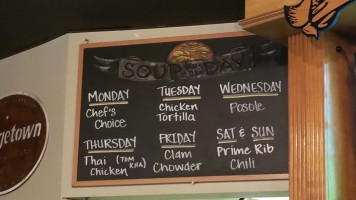 SOUP of the DAY
MONDAY
Chef's
Choice
TUESDAY
Chicken
Tortilla
WEDNESDAY
Posole
THURSDAY
Thai (TOM KHA)
Chicken
FRIDAY
Clam
Chowder
SAT & SUN
Prime Rib
Chili
getown